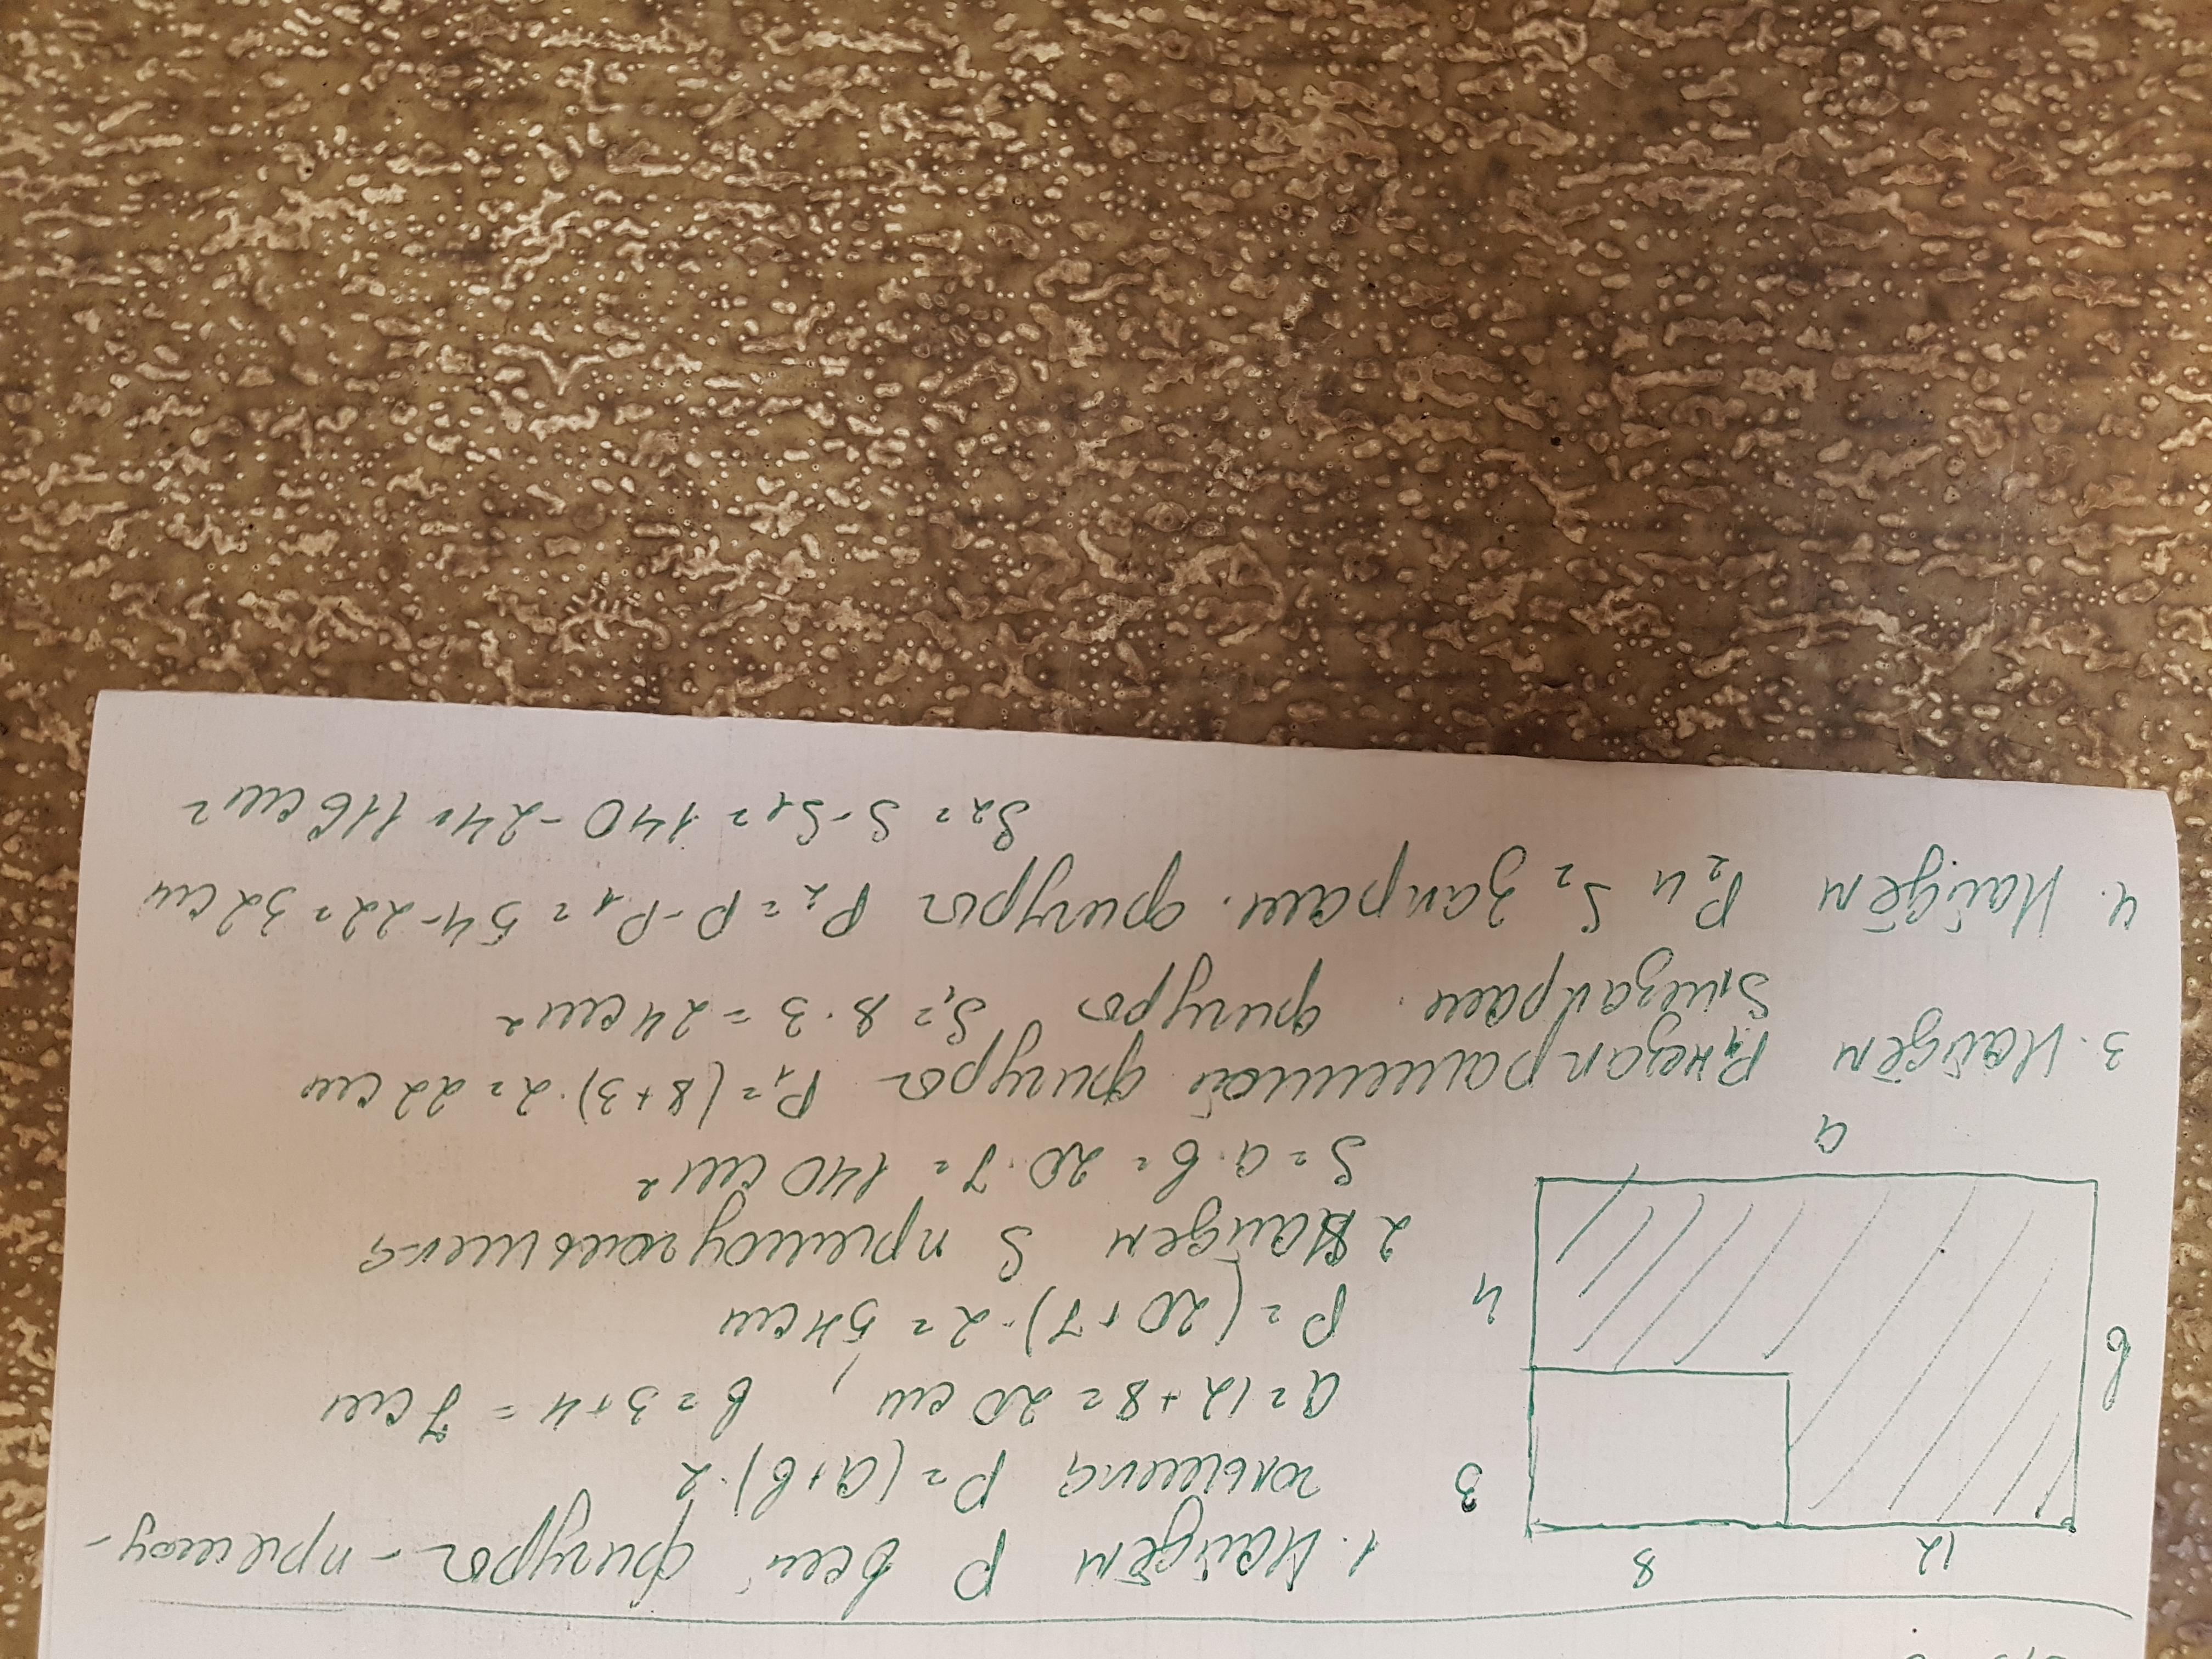 8 12
3
4
в
а
1. Найдём P всей фигуры - прямоу-
гольника P = (a+в)·2
a = 12+8 = 20 см, в = 3+4 = 7 см
P = (20+7)·2 = 54 см
2. Найдем S прямоугольника
S = a·в = 20·7 = 140 см²
3. Найдём P₁ незакрашенной фигуры P₁ = (8+3)·2 = 22 см
S₁ незакраш. фигуры S₁ = 8·3 = 24 см²
4. Найдём P₂ и S₂ закраш. фигуры P₂ = P-P₁ = 54-22 = 32 см
S₂ = S-S₁ = 140-24 = 116 см²